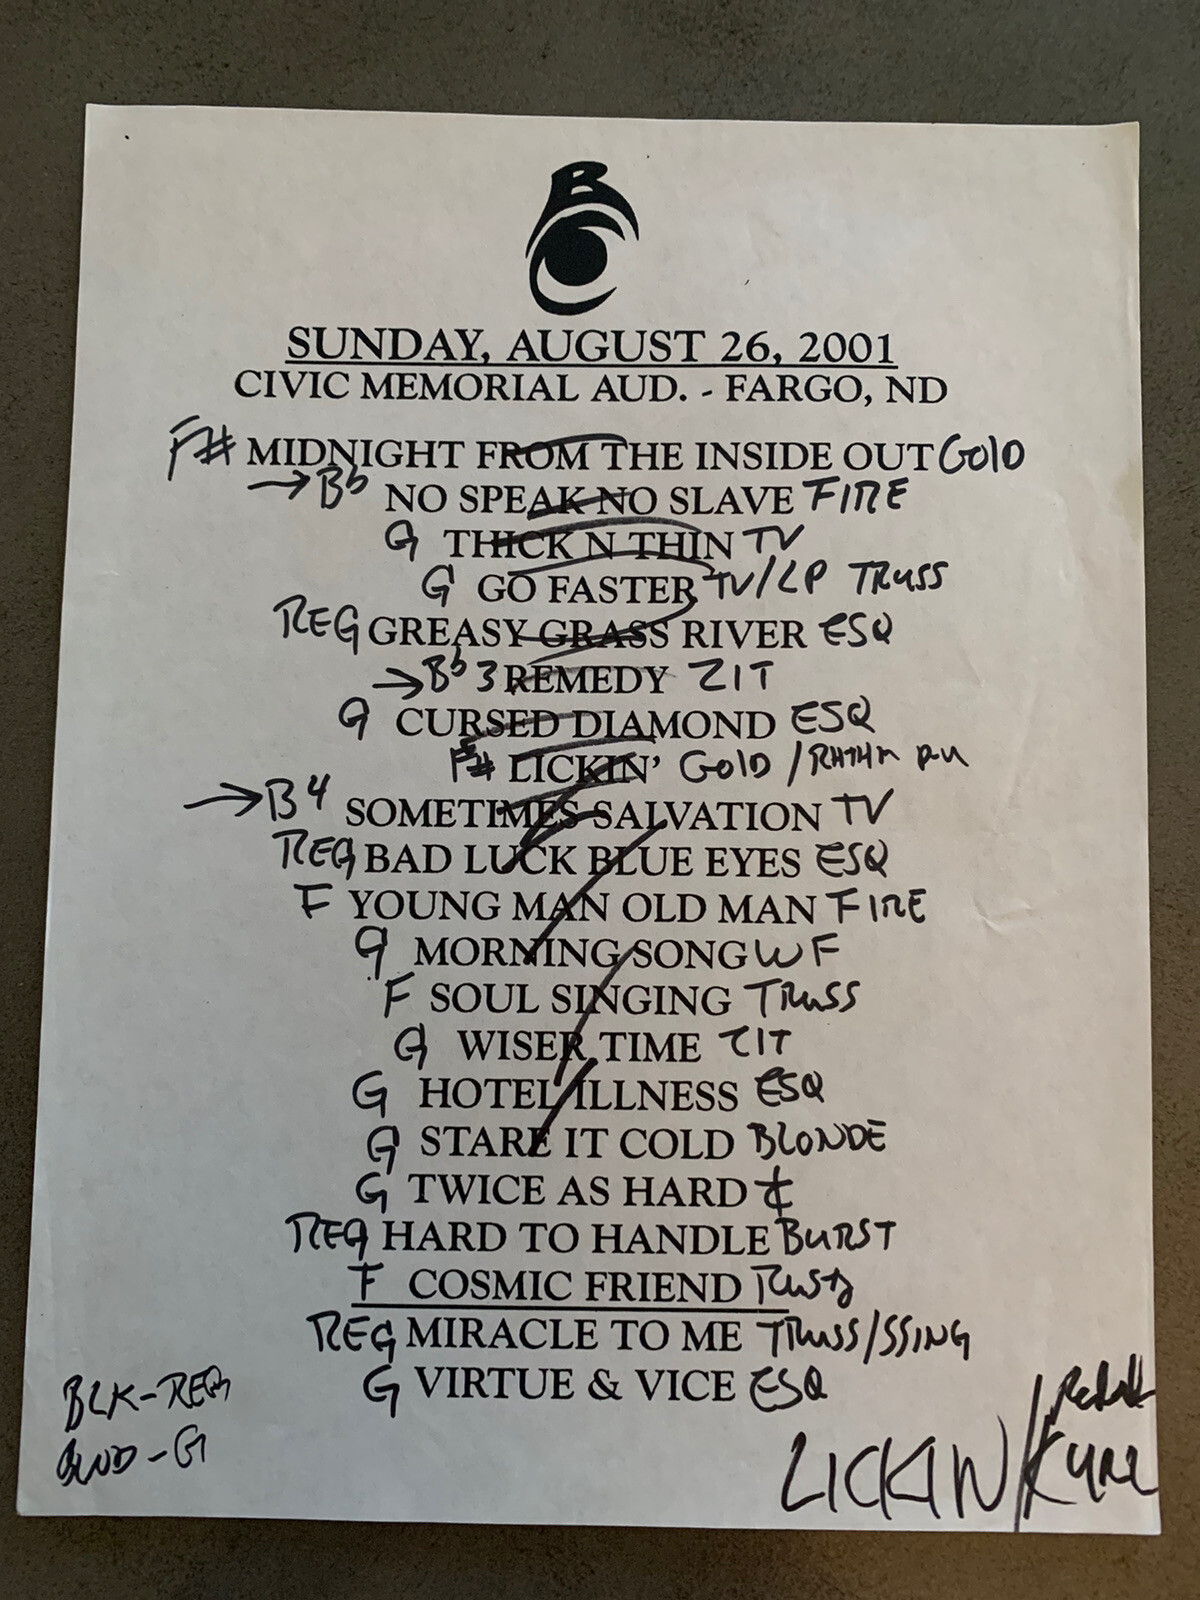 B
SUNDAY, AUGUST 26, 2001
CIVIC MEMORIAL AUD. - FARGO, ND
F# MIDNIGHT FROM THE INSIDE OUT GOLD
→ Bb NO SPEAK NO SLAVE FIRE
G THICK N THIN TV
G GO FASTER TV/LP TRUSS
REG GREASY GRASS RIVER ESQ
→ Bb 3 REMEDY ZIT
G CURSED DIAMOND ESQ
F# LICKIN' GOLD /
→ B4 SOMETIMES SALVATION TV
REG BAD LUCK BLUE EYES ESQ
F YOUNG MAN OLD MAN FIRE
G MORNING SONG WF
F SOUL SINGING TRUSS
G WISER TIME ZIT
G HOTEL ILLNESS ESQ
G STARE IT COLD BLONDE
G TWICE AS HARD
REG HARD TO HANDLE BURST
F COSMIC FRIEND RUSTY
REG MIRACLE TO ME TRUSS/SSING
G VIRTUE & VICE ESQ
BLK-REG
BLND-G
LICKIN/